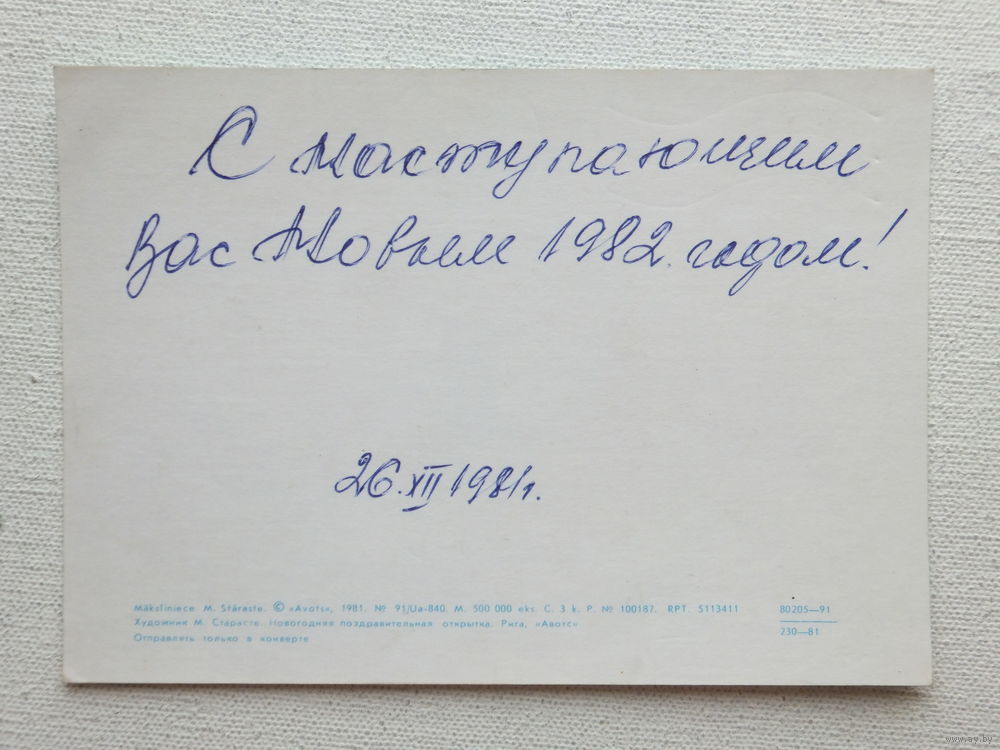 С наступающим
Вас Новым 1982 годом!
26.XII 1981г.
Māksliniece M. Stāraste. © «Avots», 1981. № 91/Ua-840. M. 500 000 eks. C. 3 k. P. № 100187. RPT. 5113411
Художник М. Старасте. Новогодняя поздравительная открытка. Рига, «Авотс»
Отправлять только в конверте
80205—91
230—81
www.ay.by